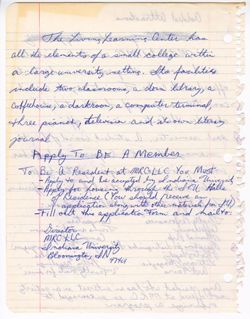 The Living Learning Center has
all the elements of a small college within
a large university setting. Its facilities
include two classrooms, a dorm library, a
coffeehouse, a darkroom, a computer terminal,
three pianos, television and its own literary
journal.
Apply To BE A Member
To Be A Resident at MRC-LLC You Must
- Apply to and be accepted by Indiana University
- Apply for housing through the I.U. Halls
of Residence (You should receive an
application along with the material from IU)
- Fill out this application form and mail to:
Director
MRC-LLC
Indiana University
Bloomington, IN
47401